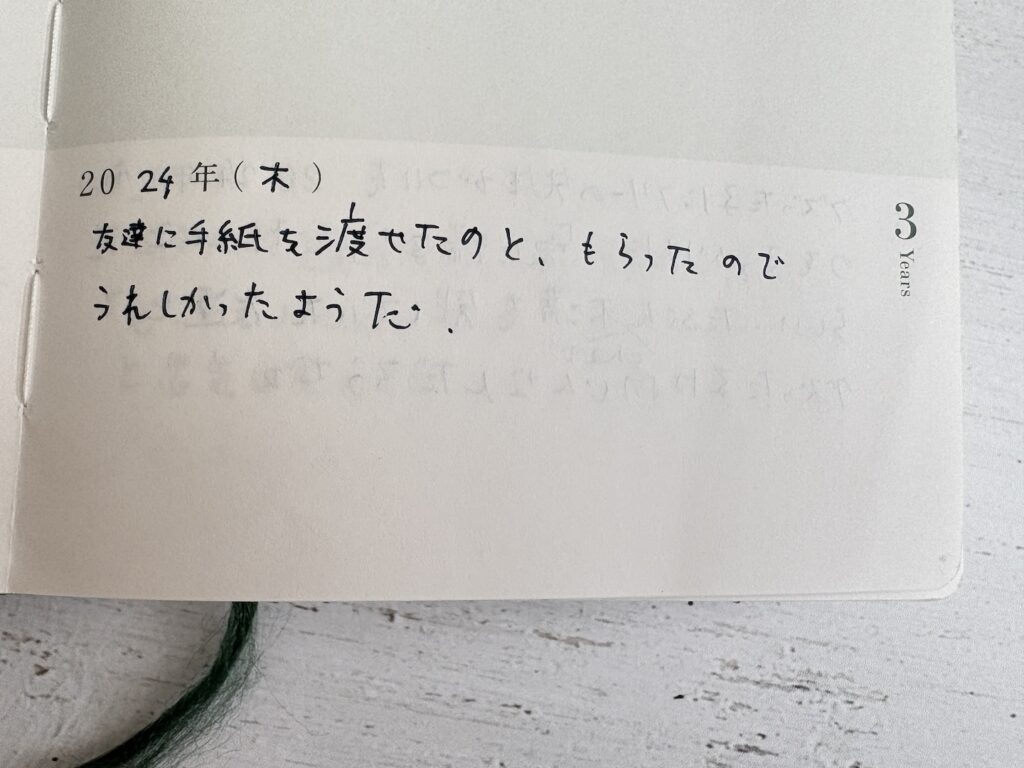 2024年(木)
友達に手紙を渡せたのと、もらったので
うれしかったようだ.
3
Years